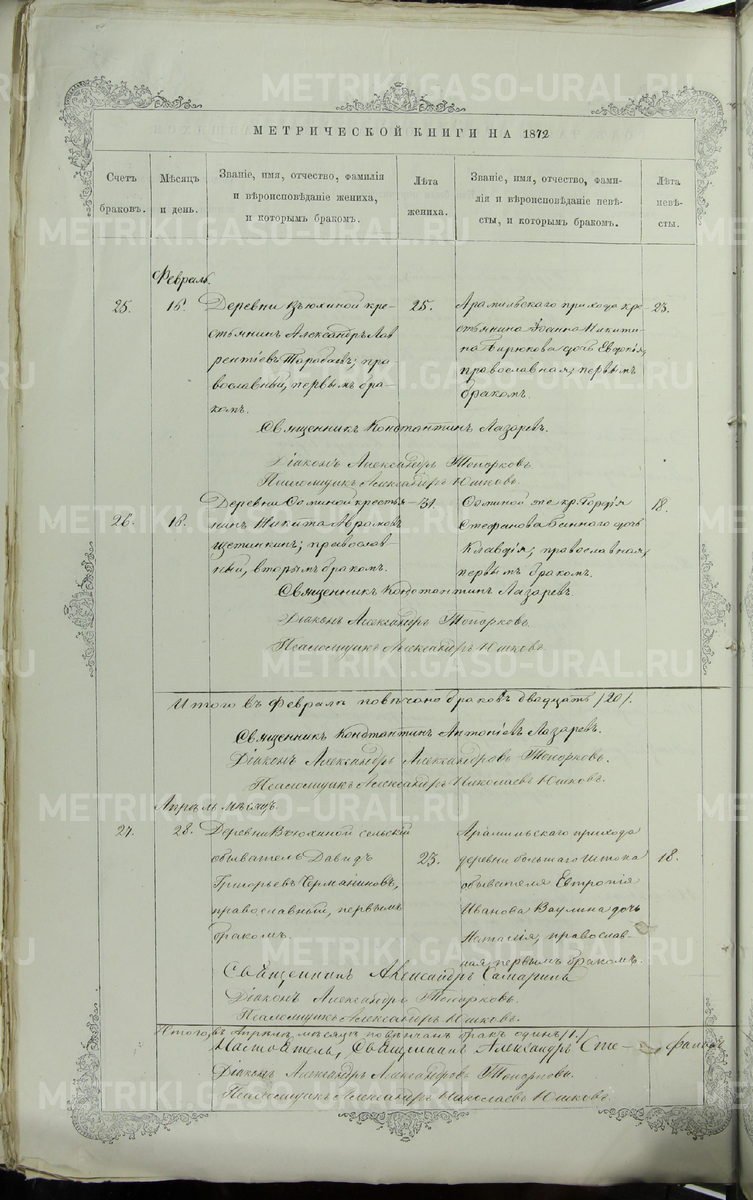 МЕТРИЧЕСКОЙ КНИГИ НА 1872
Счетъ браковъ.
Мѣсяцъ и день.
Званіе, имя, отчество, фамилія
и вѣроисповѣданіе жениха,
и которымъ бракомъ.
Лѣта жениха.
Званіе, имя, отчество, фами-
лія и вѣроисповѣданіе невѣ-
сты, и которымъ бракомъ.
Лѣта невѣ-
сты.
Февраль.
25.
Деревни Вьюхиной кре-
стьянинъ Александръ Лав
рентіевъ; пра
вославный, первымъ бра-
комъ.
25.
Арамильскаго прихода кре-
стьянина Іоанна Никити-
на Бирюкова дочь
православная, первымъ
бракомъ.
23.
Священникъ Константинъ Лазаревъ.
Діаконъ Александръ Топорковъ.
Псаломщикъ Александръ Юшковъ.
26.
16.
Деревни крестья-
нинъ Никита
Щетинкинъ; православ-
ный, вторымъ бракомъ.
31.
же кр.
Стефанова дочь
Клавдія; православная,
первымъ бракомъ.
18.
Священникъ Константинъ Лазаревъ.
Діаконъ Александръ Топорковъ.
Псаломщикъ Александръ Юшковъ.
Итого въ Февралѣ повѣнчано браковъ двадцать /20/.
Священникъ Константинъ Антоніевъ Лазаревъ.
Діаконъ Александръ Александровъ Топорковъ.
Псаломщикъ Александръ Николаевъ Юшковъ.
Апрель мѣсяцъ.
27.
28.
Деревни Вьюхиной сельскій
обыватель Давидъ
Григорьевъ
православный, первымъ
бракомъ.
23.
Арамильскаго прихода
деревни большаго Истока
обывателя Евтропія
Иванова Ваулина дочь
Наталія, православ-
ная, первымъ бракомъ.
18.
Священникъ Александръ
Діаконъ Александръ Топорковъ.
Псаломщикъ Александръ Юшковъ.
Итого, въ Апрелѣ мѣсяцѣ повѣнчанъ бракъ одинъ /1/
Настоятель, Священникъ Александръ
Діаконъ Александръ Александровъ Топорковъ.
Псаломщикъ Александръ Николаевъ Юшковъ.
METRIKI.GASO-URAL.RU